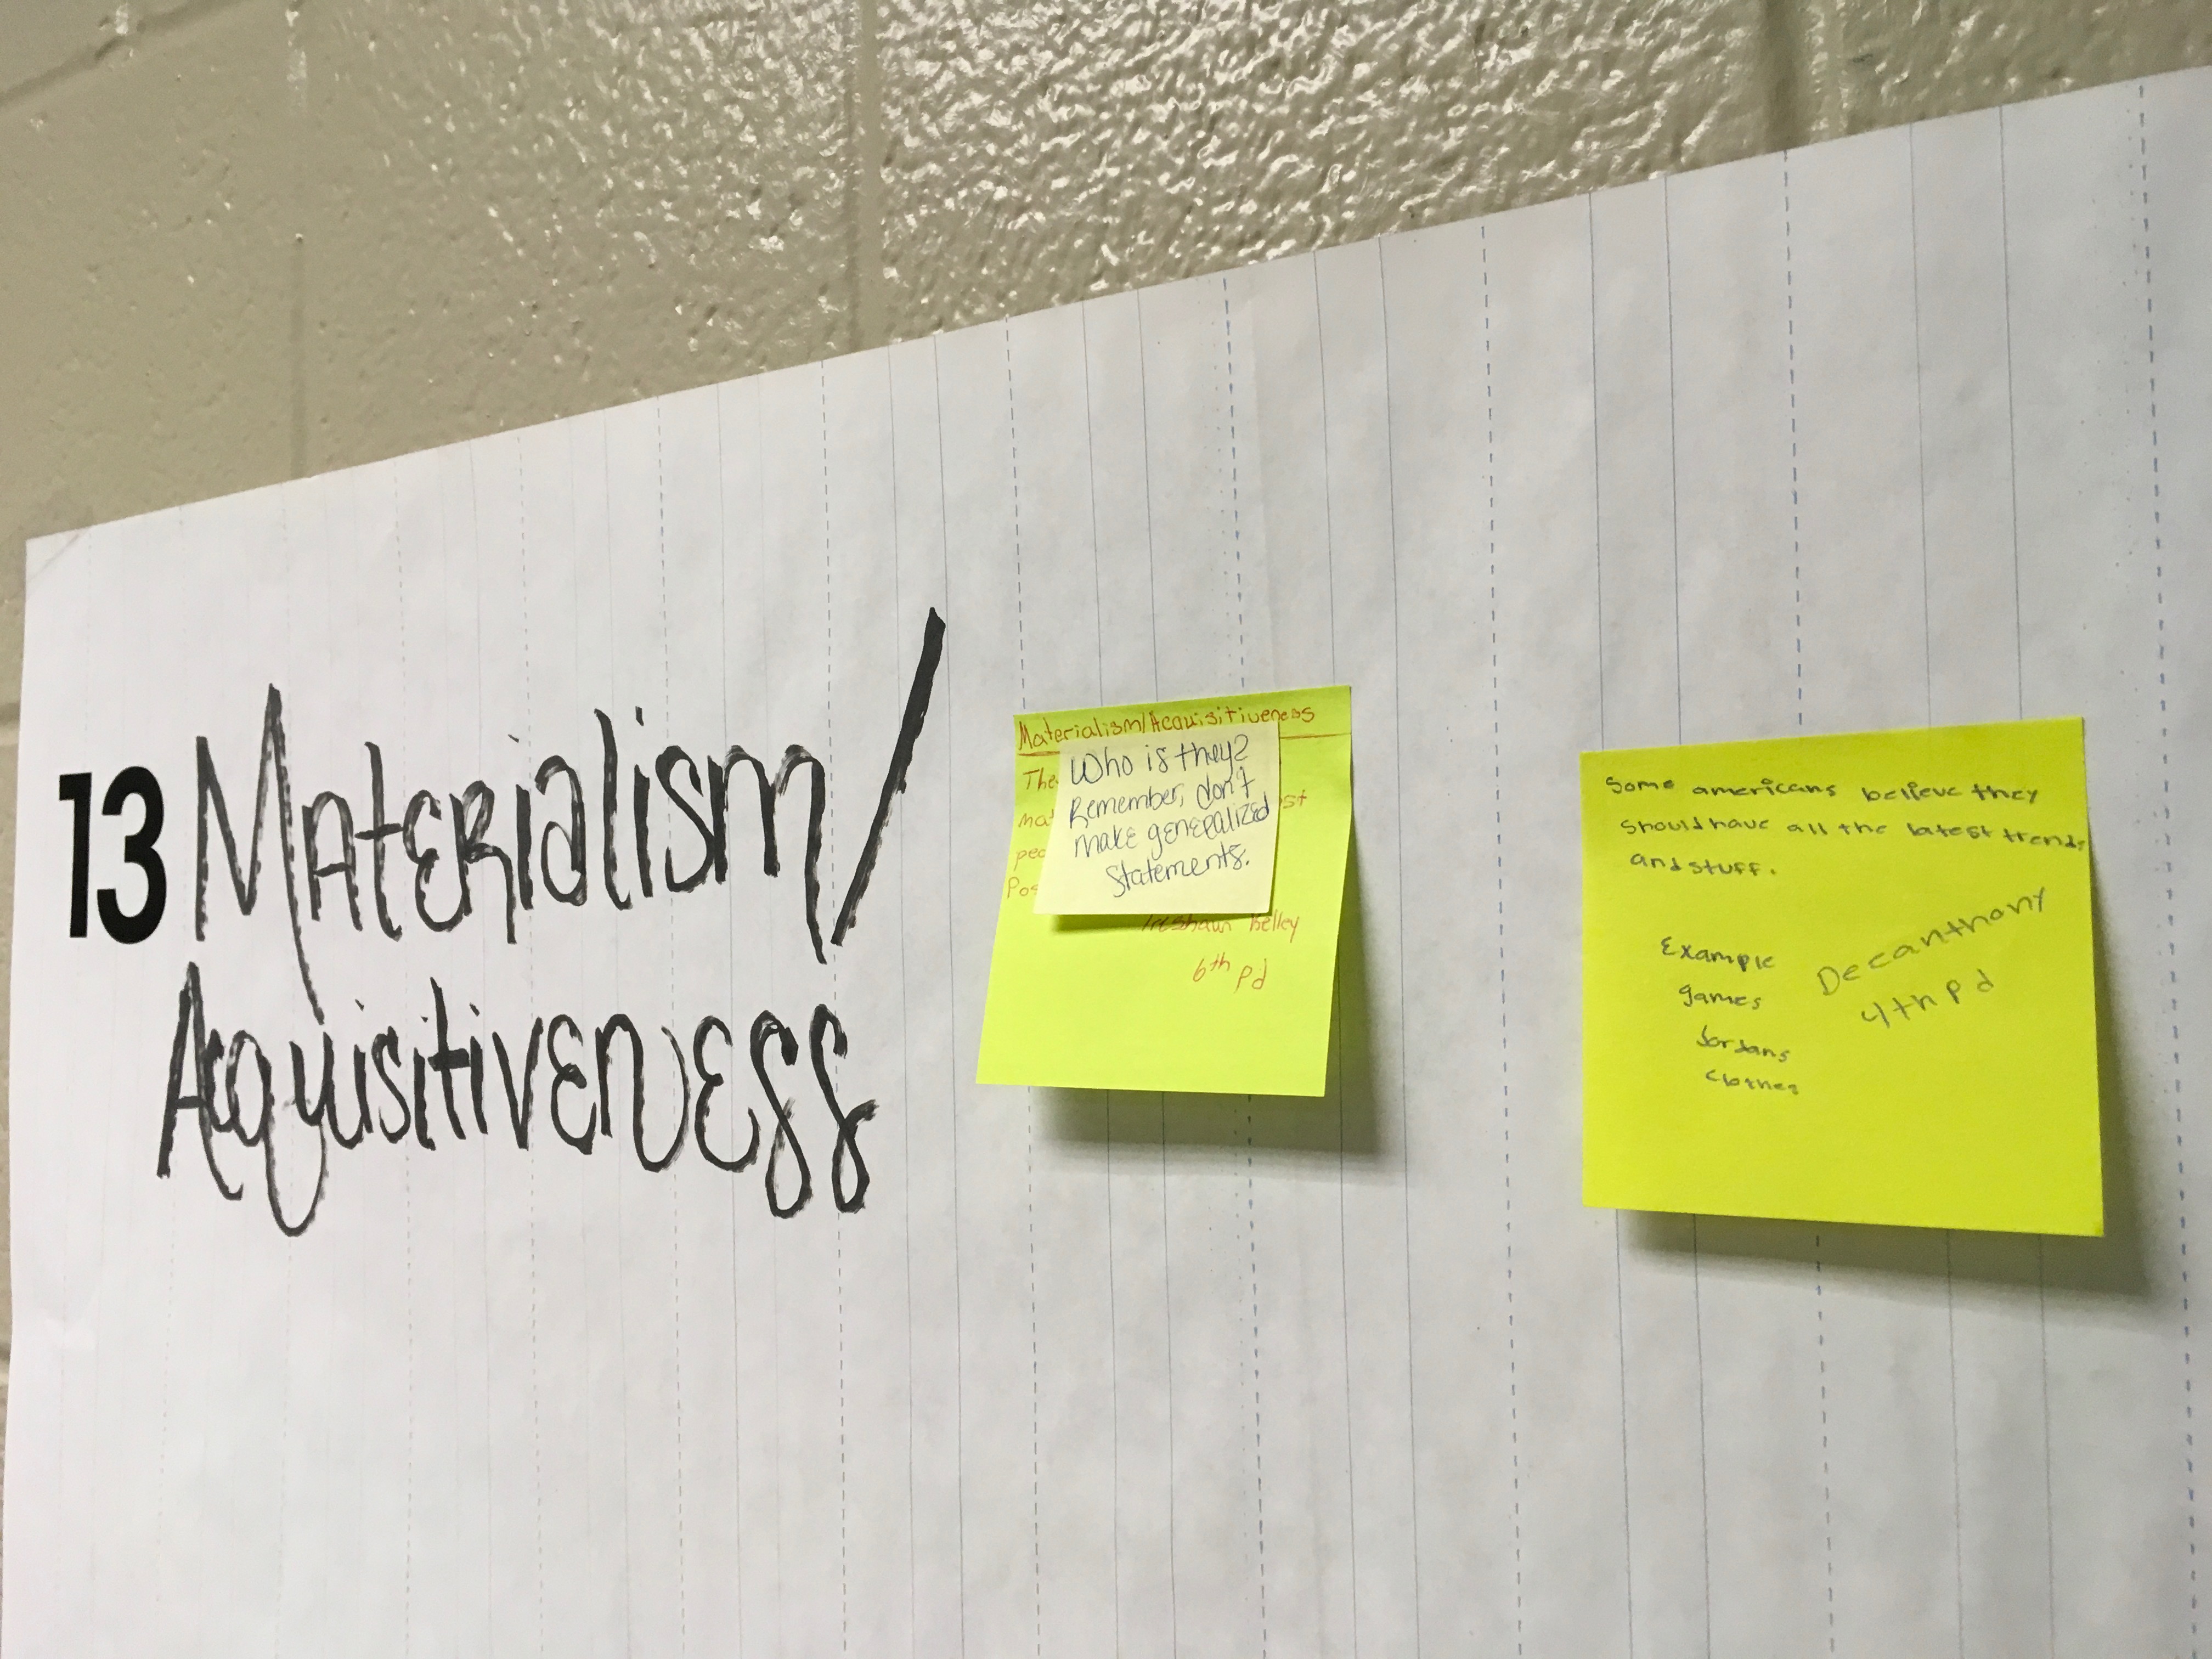 13 Materialism/
Acquisitiveness
Materialism/Acquisitiveness
Who is they?
Remember, don't
make generalized
statements.
Kelley
6th Pd
Some americans believe they
should have all the latest trends
and stuff.
Example
games
Jordans
clothes
Decanthony
4th Pd